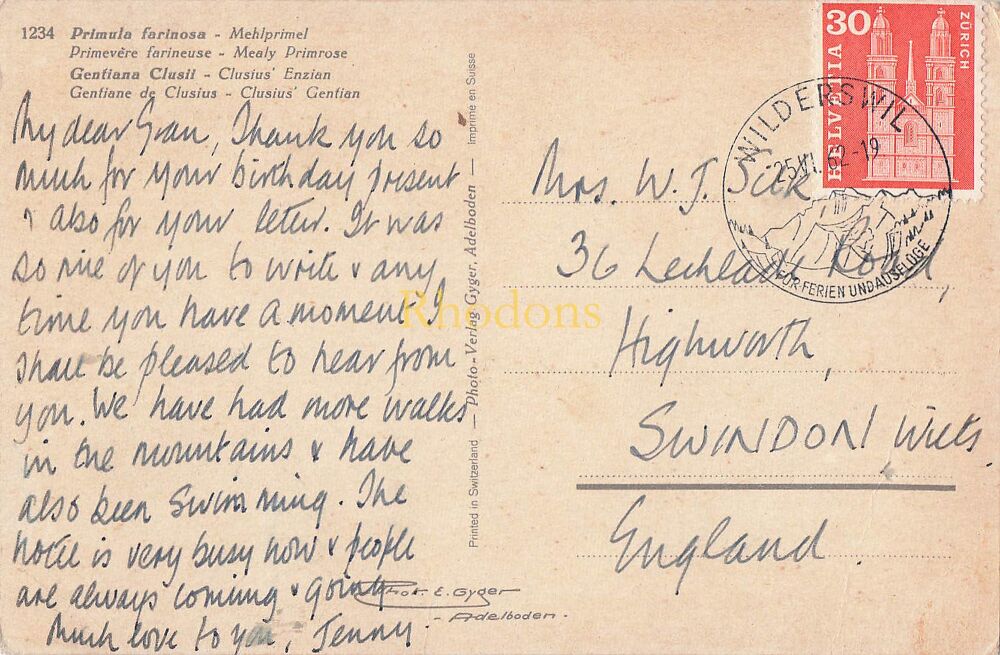 1234 Primula farinosa - Mehlprimel
Primevère farineuse - Mealy Primrose
Gentiana Clusii - Clusius' Enzian
Gentiane de Clusius - Clusius' Gentian
My dear Gran, Thank you so
much for your birthday present
& also for your letter. It was
so nice of you to write & any
time you have a moment I
shall be pleased to hear from
you. We have had more walks
in the mountains & have
also been swimming. The
hotel is very busy now & people
are always coming & going
Much love to you, Jenny.
Phot. E. Gyger
- Adelboden -
Printed in Switzerland — Photo-Verlag Gyger, Adelboden — Imprimé en Suisse
Rhodons
30
HELVETIA
ZÜRICH
WILDERSWIL
-25.VI.62-19
FÜR FERIEN UND AUSFLÜGE
Mrs. W. J. Silk
36 Lechlade Road,
Highworth,
SWINDON, Wilts.
England.